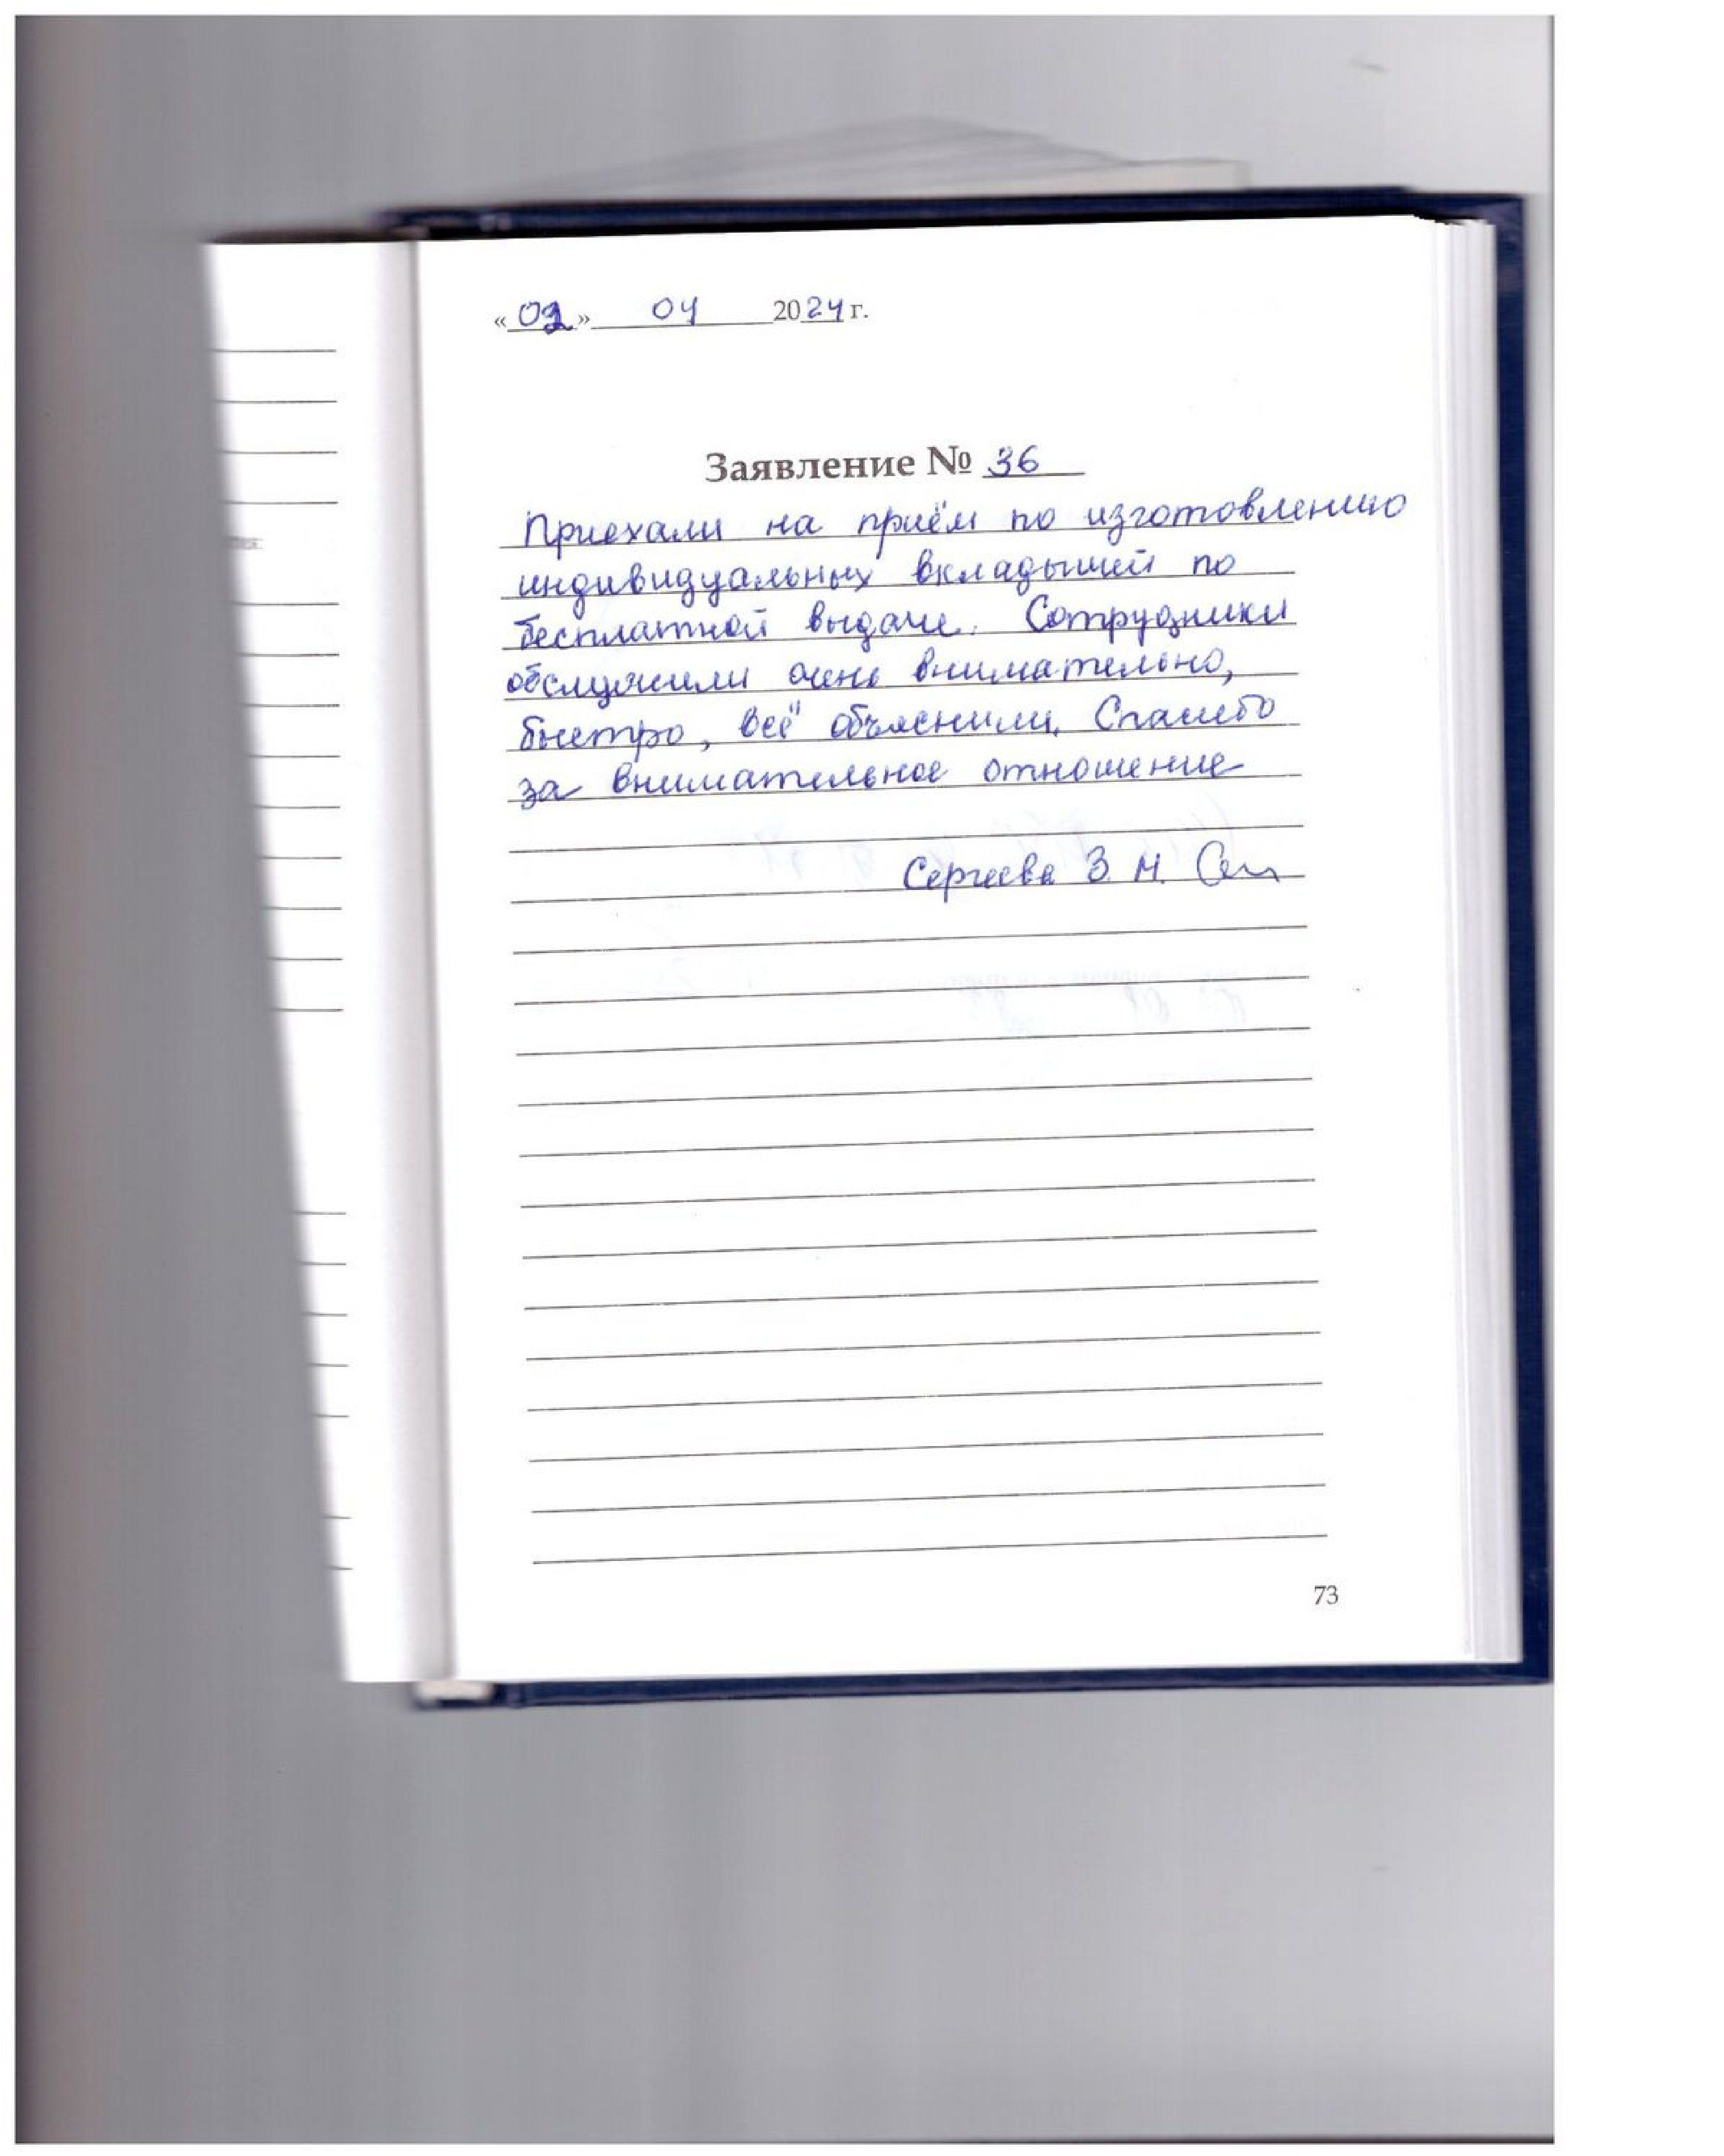 « » 04 2024 г.
Заявление № 36
Приехали на приём по изготовлению
индивидуальных вкладышей по
бесплатной выдаче. Сотрудники
обслужили очень внимательно,
быстро, всё объяснили. Спасибо
за внимательное отношение
Сергеева З. М.
73